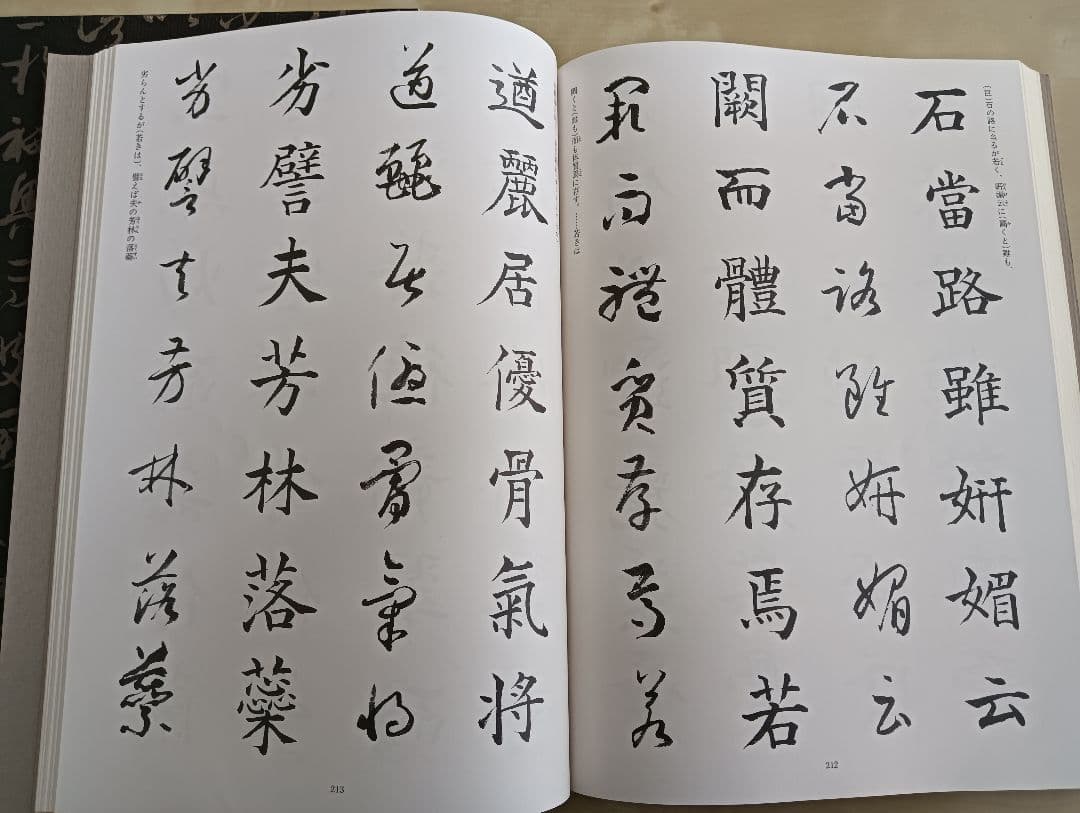 (巨)石の路に当るが若く、妍媚云に(闕くと)雖も、
石當路雖妍媚云
石當路雖妍媚云
闕而體質存焉若
闕而體質存焉若
闕くと(雖も)而も体質焉に存す。……若きは
212
遒麗居優骨氣將
遒麗居優骨氣將
劣譬夫芳林落蘂
劣譬夫芳林落蘂
劣らんとするが(若きは)、譬えば夫の芳林の落蘂
213